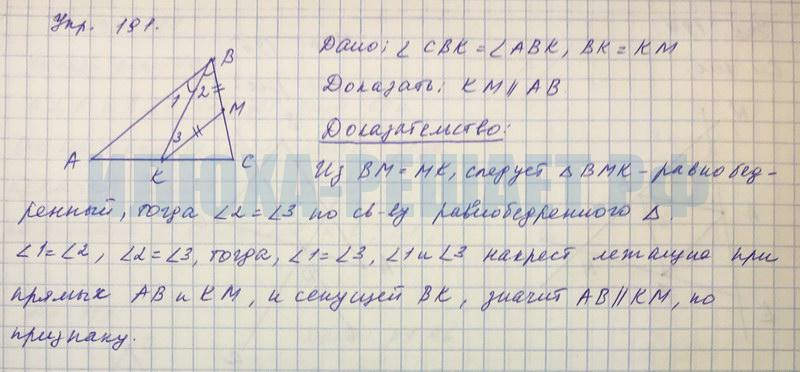 Упр. 191.
Дано: ∠ CBK = ∠ABK, BK = KM
Доказать: KM ∥ AB
Доказательство:
Из BM = MK, следует △ BMK - равнобед-
ренный, тогда ∠2 = ∠3 по св-ву равнобедренного △.
∠1 = ∠2, ∠2 = ∠3, тогда, ∠1 = ∠3, ∠1 и ∠3 накрест лежащие при
прямых AB и KM, и секущей BK, значит AB ∥ KM, по
признаку.
B
1 2
M
3
A
K
C
ИЛЮХА-РЕШАЕТ.РФ